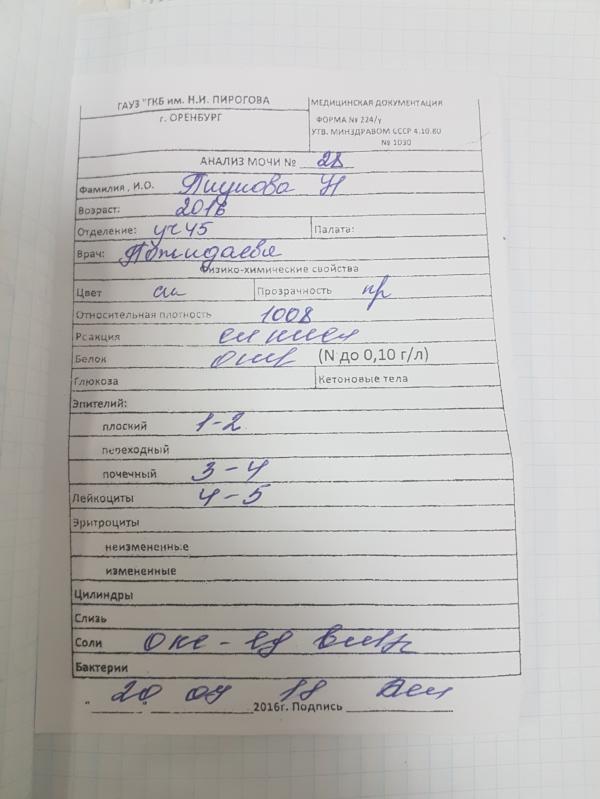 ГАУЗ "ГКБ им. Н.И. ПИРОГОВА
г. ОРЕНБУРГ
МЕДИЦИНСКАЯ ДОКУМЕНТАЦИЯ
ФОРМА № 224/у
УТВ. МИНЗДРАВОМ СССР 4.10.80
№ 1030
АНАЛИЗ МОЧИ № 28
Фамилия, И.О. Н
Возраст: 2016
Отделение: уч 45 Палата:
Врач: Пожидаева
Физико-химические свойства
Цвет Прозрачность пр
Относительная плотность 1008
Реакция
Белок (N до 0,10 г/л)
Глюкоза Кетоновые тела
Эпителий:
плоский 1-2
переходный
почечный 3-4
Лейкоциты 4-5
Эритроциты
неизмененные
измененные
Цилиндры
Слизь
Соли окс - ед
Бактерии
" 20 " 04 18 2016г. Подпись